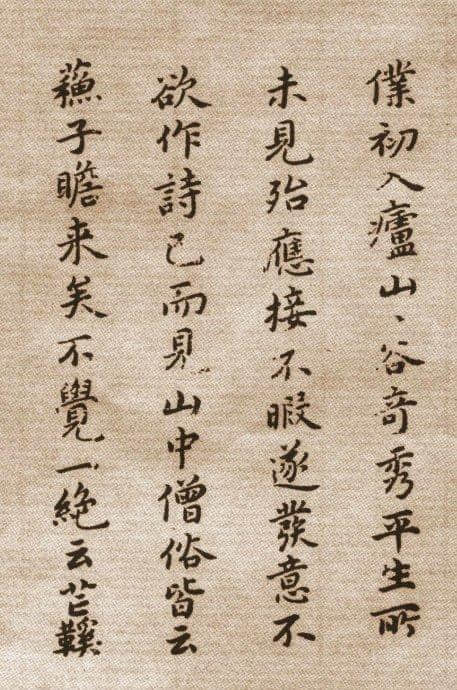 僕初入廬山、谷奇秀平生所
未見殆應接不暇遂發意不
欲作詩已而見山中僧俗皆云
蘓子瞻来矣不覺一絶云芒鞵